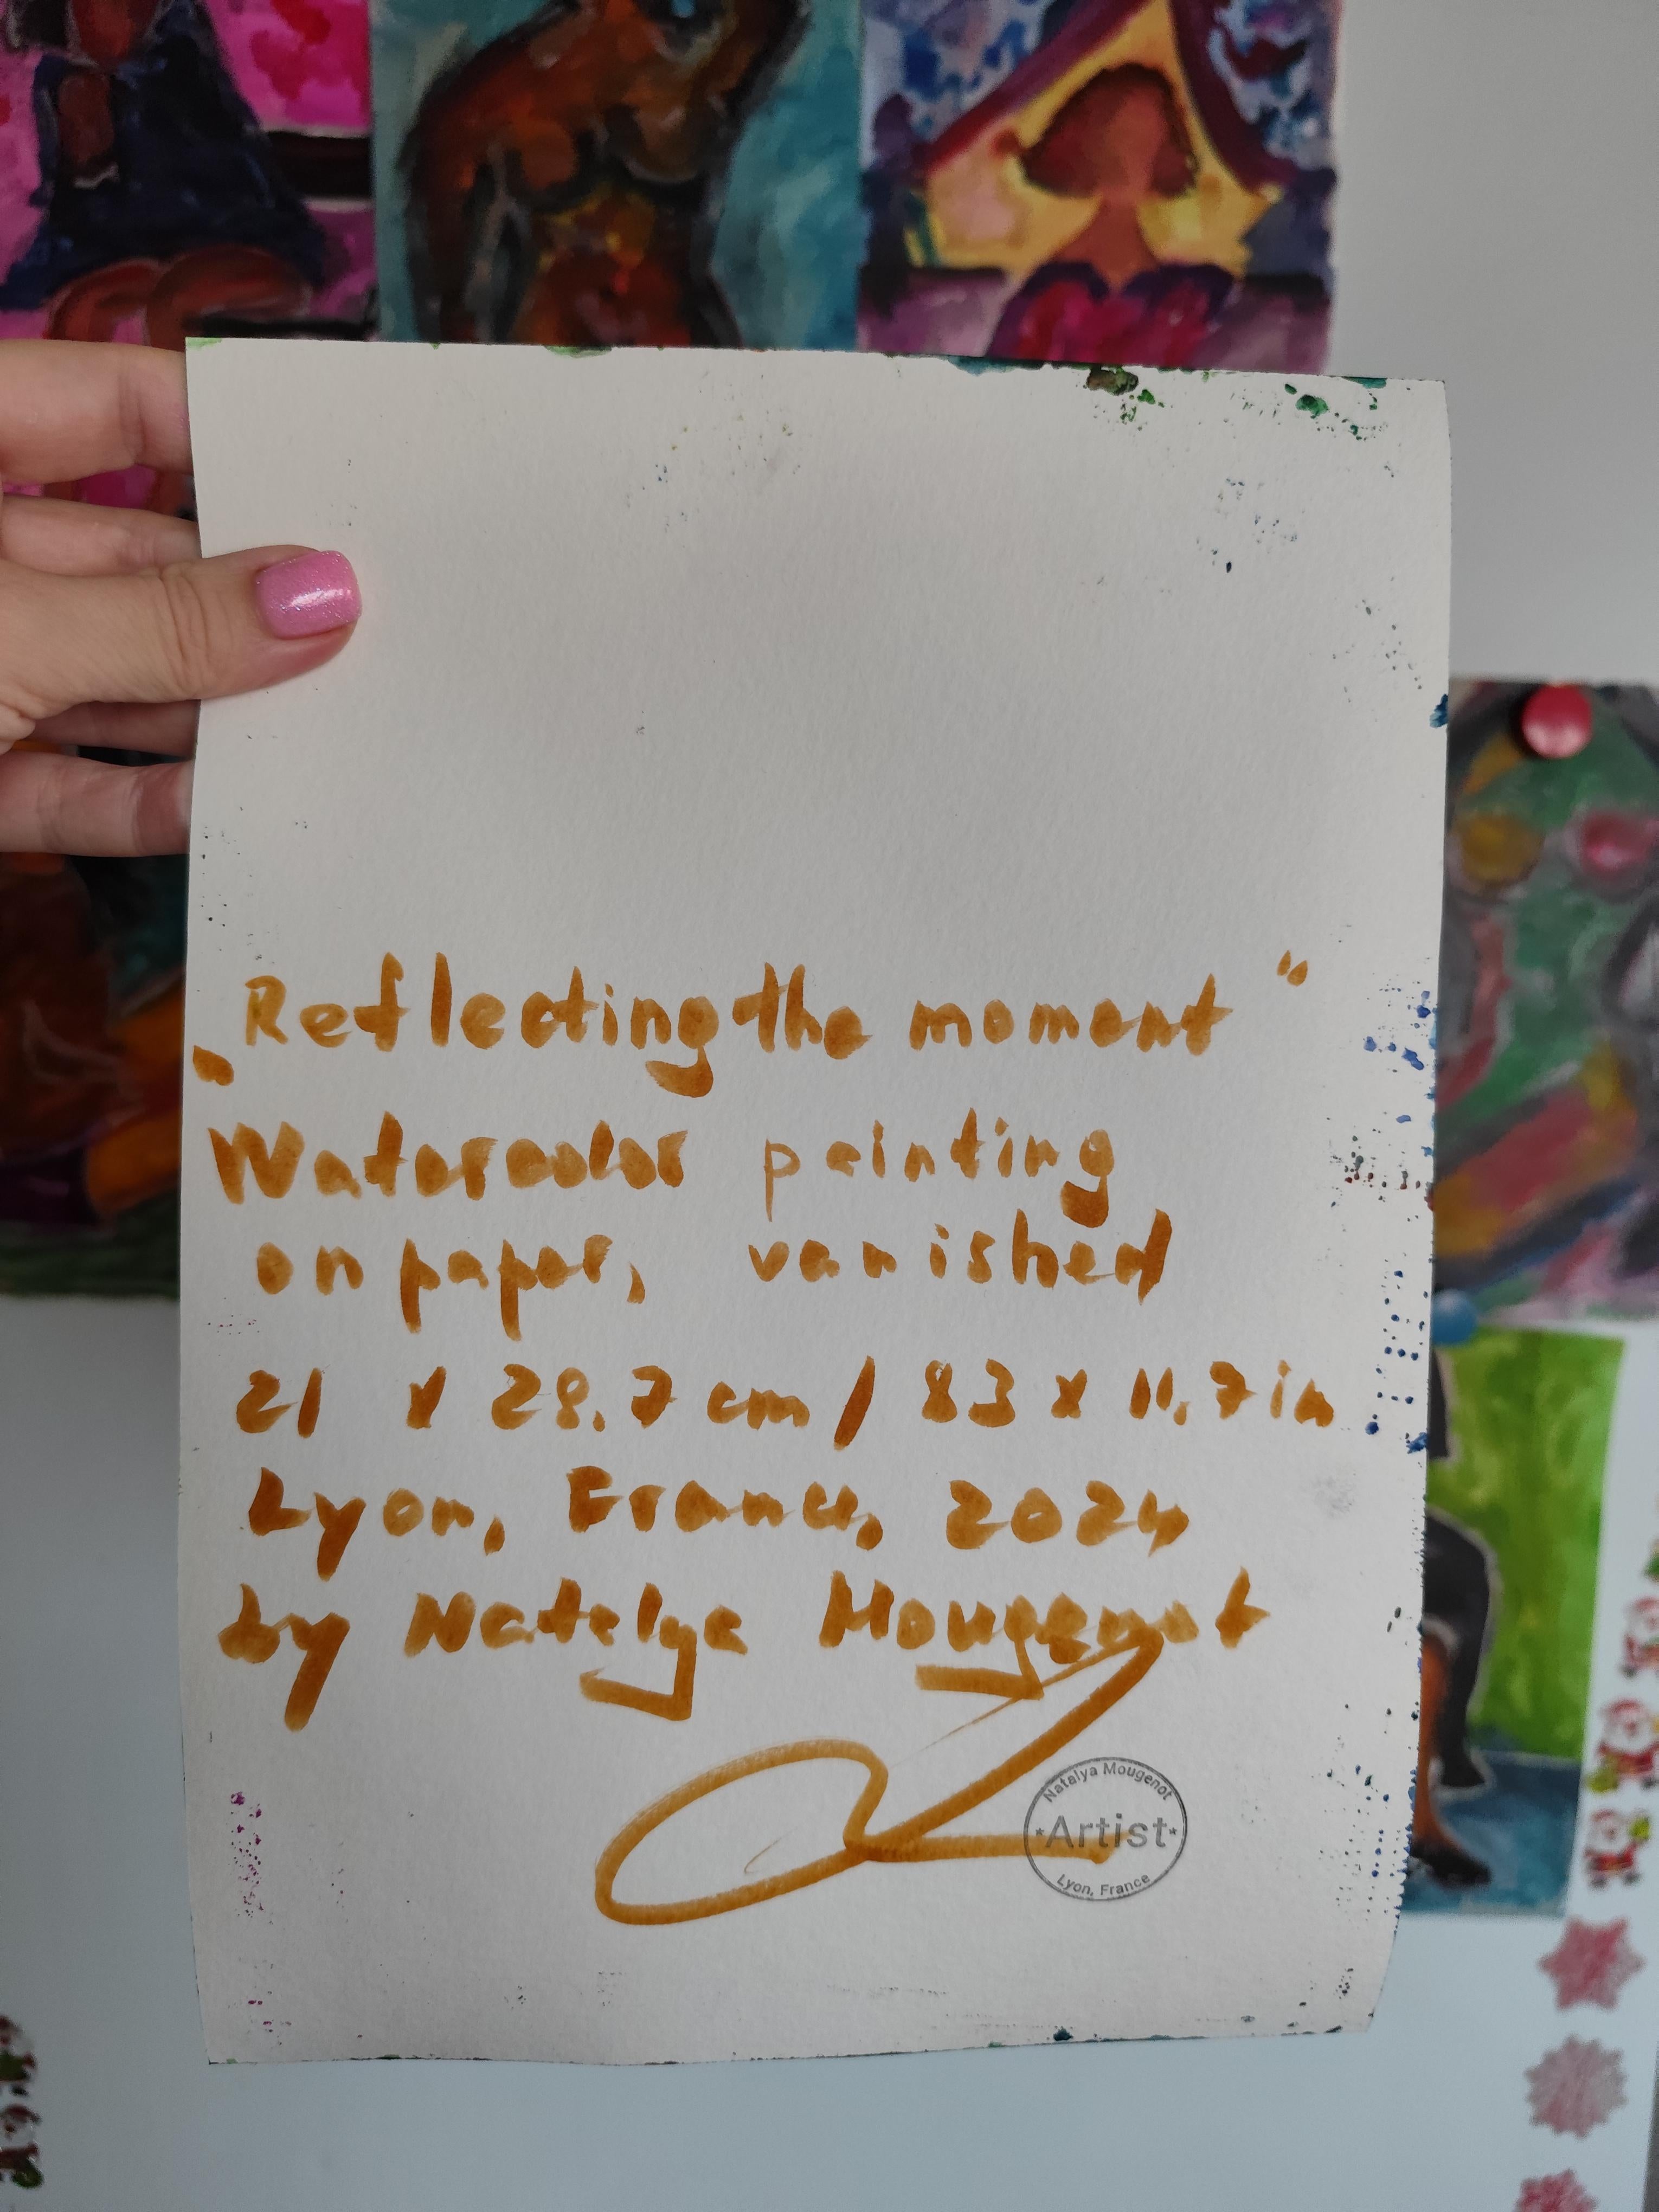 „Reflecting the moment“
Watercolor painting
on paper, vanished
21 x 29.7 cm / 8.3 x 11.7 in
Lyon, France, 2024
by Natalya Mougenot
Natalya Mougenot
*Artist*
Lyon, France